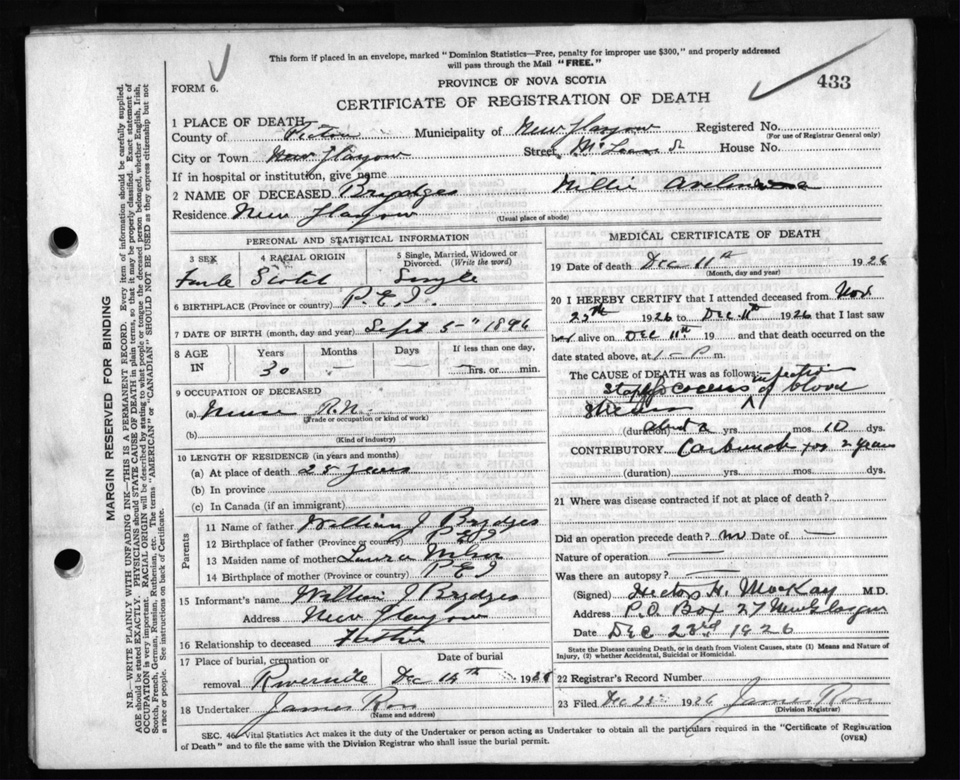 This form if placed in an envelope, marked "Dominion Statistics—Free, penalty for improper use $300," and properly addressed
will pass through the Mail "FREE."
FORM 6.
PROVINCE OF NOVA SCOTIA
433
CERTIFICATE OF REGISTRATION OF DEATH
MARGIN RESERVED FOR BINDING
N.B.—WRITE PLAINLY, WITH UNFADING INK—THIS IS A PERMANENT RECORD. Every item of information should be carefully supplied.
AGE should be stated EXACTLY. PHYSICIANS should STATE CAUSE OF DEATH in plain terms, so that it may be properly classified. Exact statement of
OCCUPATION is very important. RACIAL ORIGIN will be described by stating to what people or tongue the deceased person belonged, whether English, Irish,
Scotch, French, German, Russian, Ruthenian, etc. The terms "AMERICAN" or "CANADIAN" SHOULD NOT BE USED as they express citizenship but not
a race or people. See instructions on back of Certificate.
1 PLACE OF DEATH
County of Pictou Municipality of New Glasgow Registered No.
(For use of Registrar General only)
City or Town New Glasgow Street McLean St House No.
If in hospital or institution, give name
2 NAME OF DECEASED Brydges Millie
Residence New Glasgow
(Usual place of abode)
PERSONAL AND STATISTICAL INFORMATION
3 SEX 4 RACIAL ORIGIN 5 Single, Married, Widowed or Divorced. (Write the word)
Fmle Scotch Single
6 BIRTHPLACE (Province or country) P.E.I.
7 DATE OF BIRTH (month, day and year) Sept 5th 1896
8 AGE IN Years Months Days If less than one day,
30 — — hrs. or min.
9 OCCUPATION OF DECEASED
(a) Nurse R.N.
(Trade or occupation or kind of work)
(b)
(Kind of industry)
10 LENGTH OF RESIDENCE (in years and months)
(a) At place of death 28 years
(b) In province
(c) In Canada (if an immigrant)
Parents
11 Name of father William J Brydges
12 Birthplace of father (Province or country) P E I
13 Maiden name of mother Laura
14 Birthplace of mother (Province or country) P E I
15 Informant's name William J Brydges
Address New Glasgow
16 Relationship to deceased Father
17 Place of burial, cremation or removal Date of burial
Riverside Dec 14th 1926
18 Undertaker James Ross
(Name and address)
MEDICAL CERTIFICATE OF DEATH
19 Date of death Dec 11th 1926
(Month, day and year)
20 I HEREBY CERTIFY that I attended deceased from Nov
25th 1926 to Dec. 11th 1926 that I last saw
her alive on Dec 11th 19 and that death occurred on
date stated above, at 1 - P m.
The CAUSE OF DEATH was as follows:
infection
of blood
stream
(duration) about 2 yrs. mos. 10 dys.
CONTRIBUTORY Carbuncle for 2 years
(duration) yrs. mos. dys.
21 Where was disease contracted if not at place of death?
Did an operation precede death? no Date of —
Nature of operation —
Was there an autopsy? —
(Signed) Hector H. MacKay M.D.
Address P.O. Box 27 New Glasgow
Date Dec 23rd 1926
State the Disease causing Death, or in death from Violent Causes, state (1) Means and Nature of
Injury, (2) whether Accidental, Suicidal or Homicidal.
22 Registrar's Record Number
23 Filed Dec 1926 James Ross
(Division Registrar)
SEC. 46. Vital Statistics Act makes it the duty of the Undertaker or person acting as Undertaker to obtain all the particulars required in the "Certificate of Registration
of Death" and to file the same with the Division Registrar who shall issue the burial permit.
(OVER)